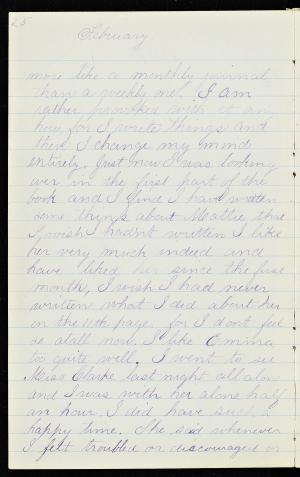 25
February
more like a monthly journal
than a weekly one. I am
rather provoked with it any
how for I write things and
then I change my mind
entirely. Just now I was looking
over in the first part of the
book and I find I have written
some things about Mattie that
I wish I hadn't written I like
her very much indeed and
have liked her since the first
month, I wish I had never
written what I did about her
on the 11th page. for I dont feel
so atall now. I like Emma
too quite well. I went to see
Miss Clarke last night all alone
and I was with her alone half
an hour. I did have such a
happy time. She said whenever
I felt troubled or discouraged or